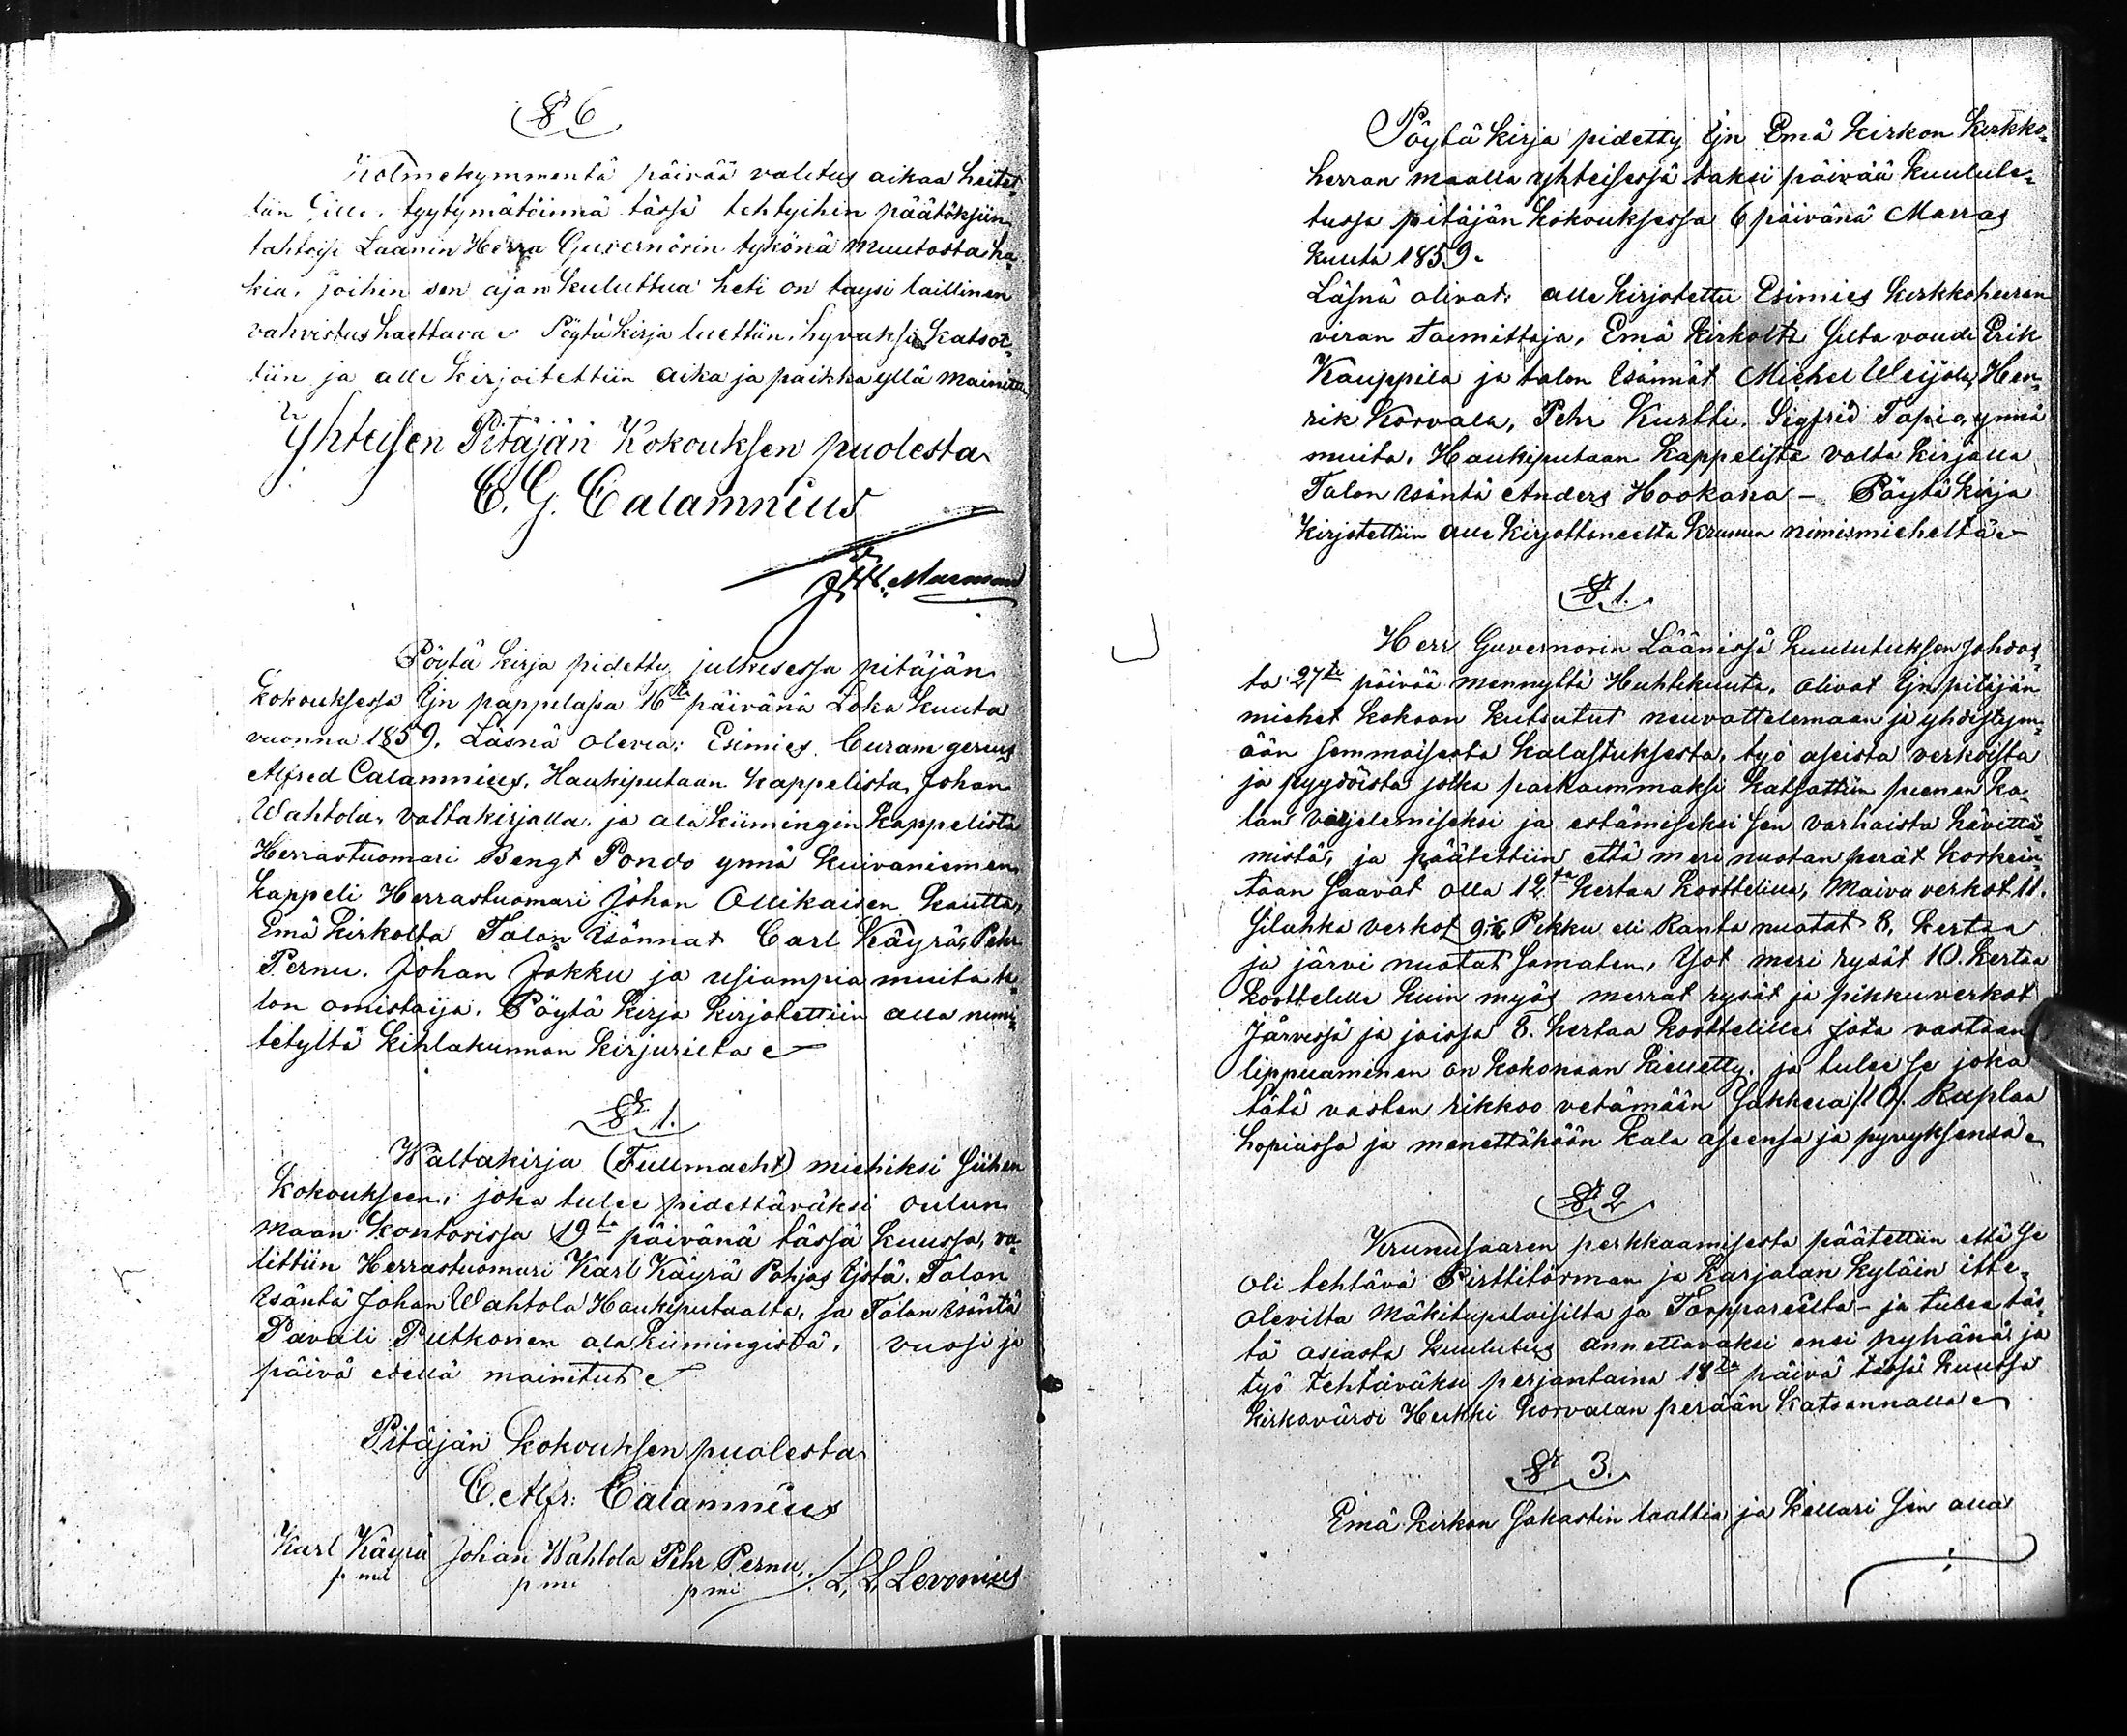 § 6
Kolmekymmentä päivää valitus aikaa heitet-
tiin sille, tyytymätöinnä tässä tehtyihin päätöksiin
tahtoisi Laanin Herra Guvernörin tykönä muutosta ha-
kia, joihin sen ajan kuluttua heti on taysi laillinen
vahvistus haettava. Pöytä kirja luettiin, hyvaksi katsot-
tiin ja alle kirjoitettiin aika ja paikka yllä mainittu
Yhteisen Pitäjän Kokouksen puolesta
C. G. Calamnius
Pöytä kirja pidetty julkisessa pitäjän
kokouksessa Ijn pappilassa 16ta päivänä Loka kuuta
vuonna 1859. Läsnä olevia: Esimies Curam gerens
Alfred Calamnius, Haukiputaan kappelista Johan
Wahtola, valtakirjalla, ja ala kiimingin kappelista
Herrastuomari Bengt Pondo ynnä kuivaniemen
kappeli Herrastuomari Johan Ollikaisen kautta,
Emä kirkolta Talon isännat Carl Käyrä, Pehr
Pernu. Johan Jokku ja usiampia muita ta-
lon omistaija. Pöytä kirja kirjotettiin alla nimi-
tetyltä kihlakunnan kirjurilta
§ 1.
Waltakirja (Fullmacht) miehiksi siihen
kokoukseen, joka tulee pidettäväksi oulun
maan kontorissa 19ta päivänä tässä kuussa, va-
littiin Herrastuomari Karl Käyrä Pohjas Ijstä. Talon
isäntä Johan Wahtola Haukiputaalta, ja Talon isäntä
Pavali Putkonen ala kiimingistä, vuosi ja
päivä edellä mainitut
Pitäjän kokouksen puolesta
C. Alfr: Calamnius
Karl Käyrä Johan Wahtola Pehr Pernu ./. L. L. Levonius
p mi p mi
Pöytä kirja pidetty Ijn Emä kirkon kirkko-
herran maalla yhteisessä taksi päivää kuulute-
tussa pitäjän kokouksessa 6 päivänä Marras
kuuta 1859.
Läsnä olivat: alle kirjotettu Esimies kirkkoherran
viran toimittaja, Emä kirkolta silta voudi Erik
Kauppila ja talon isännät Michel Weijola, Hen-
rik Korvala, Pehr Kurtti, Sigfrid Tapio, ynnä
muita. Haukiputaan kappelista valta kirjalla
Talon isäntä Anders Hookana - Pöytä kirja
kirjotettiin alle kirjottaneelta kruunun nimismieheltä
§ 1.
Herr Guvernorin Läänissä kuulutuksen johdos-
ta 27ta päivää mennyltä Huhtikuuta, olivat Ijn pitäjän
miehet kokoon kutsutut neuvottelemaan ja yhdistym-
ään semmoisesta kalastuksesta, työ aseista verkoista
ja pyydöistä jotka parhaimmaksi katsottiin pienen ka-
lan varjelemiseksi ja estämiseksi sen varhaista hävittä-
mistä, ja päätettiin että meri nuotan perät korkein-
taan saavat olla 12ta kertaa korttelille, Maiva verkot 11.
Silahka verkot 9 ½ Pikku eli Ranta nuotat 8. kertaa
ja järvi nuotat samaten, Yot meri rysät 10. kertaa
korttelille kuin myös merrat rysät ja pikkuverkot
Järvessä ja joissa 8. kertaa korttelille jota vastaan
lippuaminen on kokonaan kielletty, ja tulee se joka
tätä vasten rikkoo vetämään sakkua /10/. Ruplaa
hopiassa ja menettäköön kala aseensa ja pyryksensä
§ 2
Krunusaaren perkkaamisesta päätettiin että se
oli tehtävä Pirttitörman ja Karjalan kyläin itte-
olevilta Mäkitupalaisilta ja Torppareilta - ja tulee täs-
tä asiasta kuulutus annettavaksi ensi pyhänä ja
työ tehtäväksi perjantaina 18ta päivä tässä kuussa
kirkovärdi Heikki korvalan perään katsannalla
§ 3.
Emä kirkon sakastin laattia ja kellari sen alla